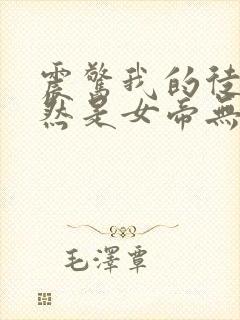 震驚我的徒
然是女帝無
毛澤覃